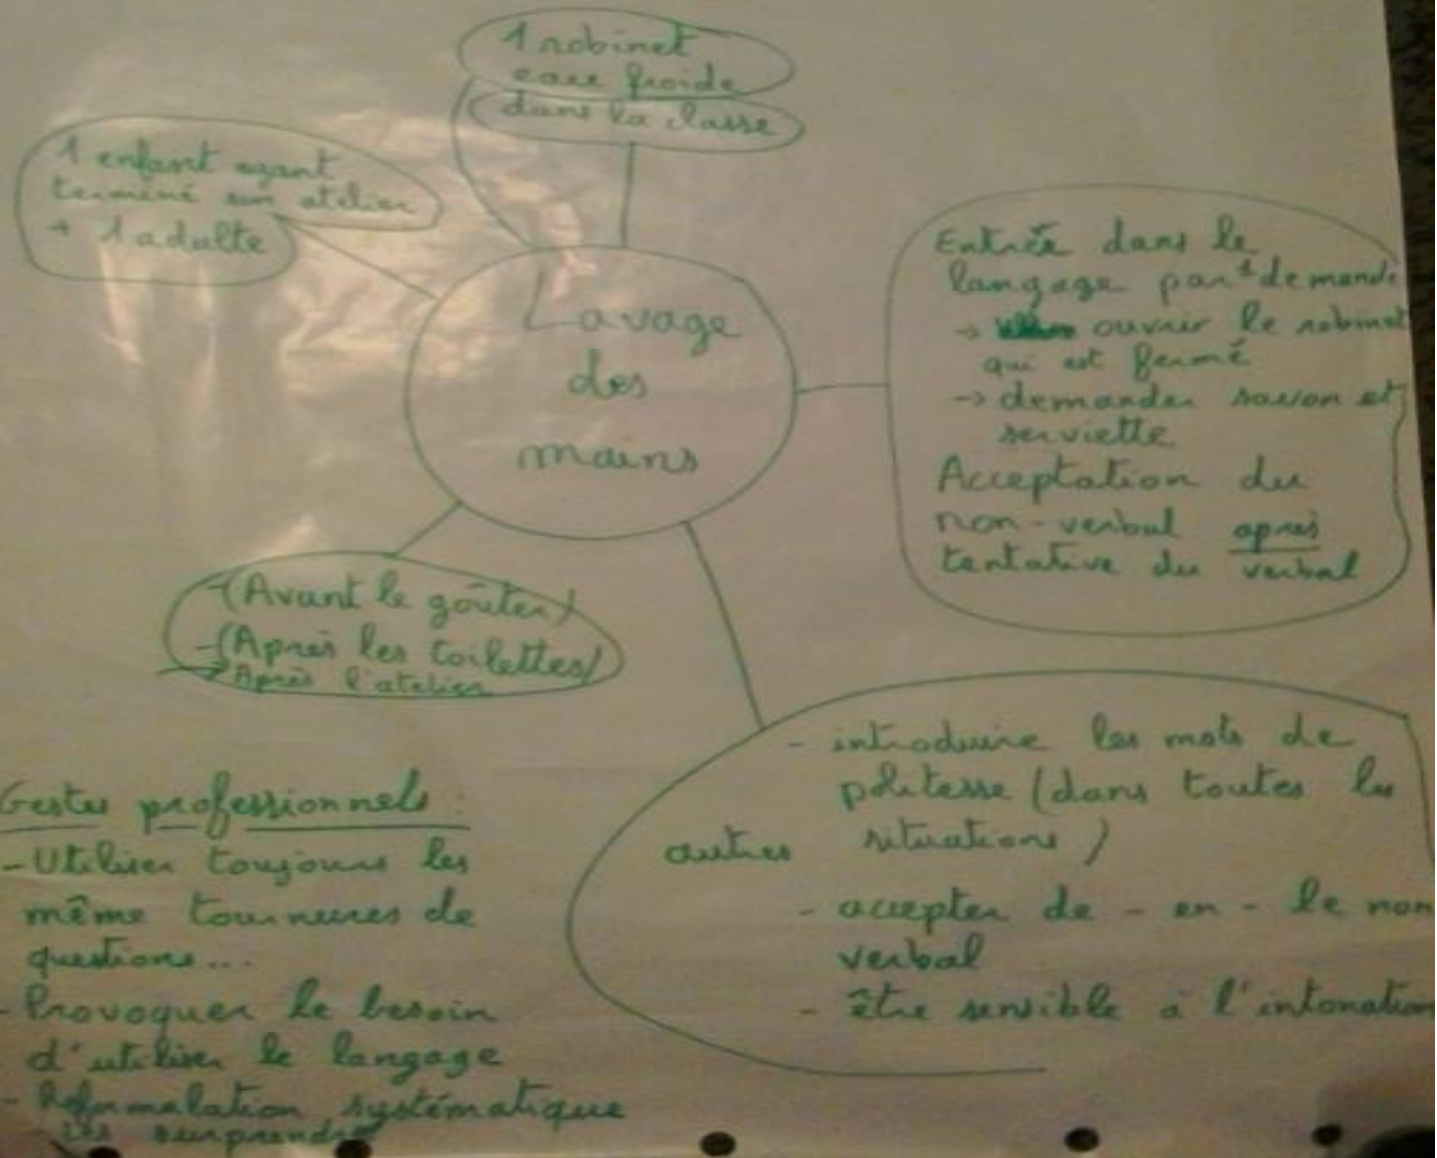 1 robinet
eau froide
dans la classe
1 enfant ayant
terminé son atelier
+ 1 adulte
Lavage
des
mains
Entrée dans le
langage par la demande
→ ouvrir le robinet
qui est fermé
→ demander savon et
serviette
Acceptation du
non-verbal après
tentative du verbal
- (Avant le goûter)
- (Après les toilettes)
→ Après l'atelier
- introduire les mots de
politesse (dans toutes les
autres situations)
- accepter de - en - le non
verbal
- être sensible à l'intonation
Gestes professionnels :
- Utiliser toujours les
même tournures de
questions...
- Provoquer le besoin
d'utiliser le langage
- Reformulation systématique
- Les surprendre